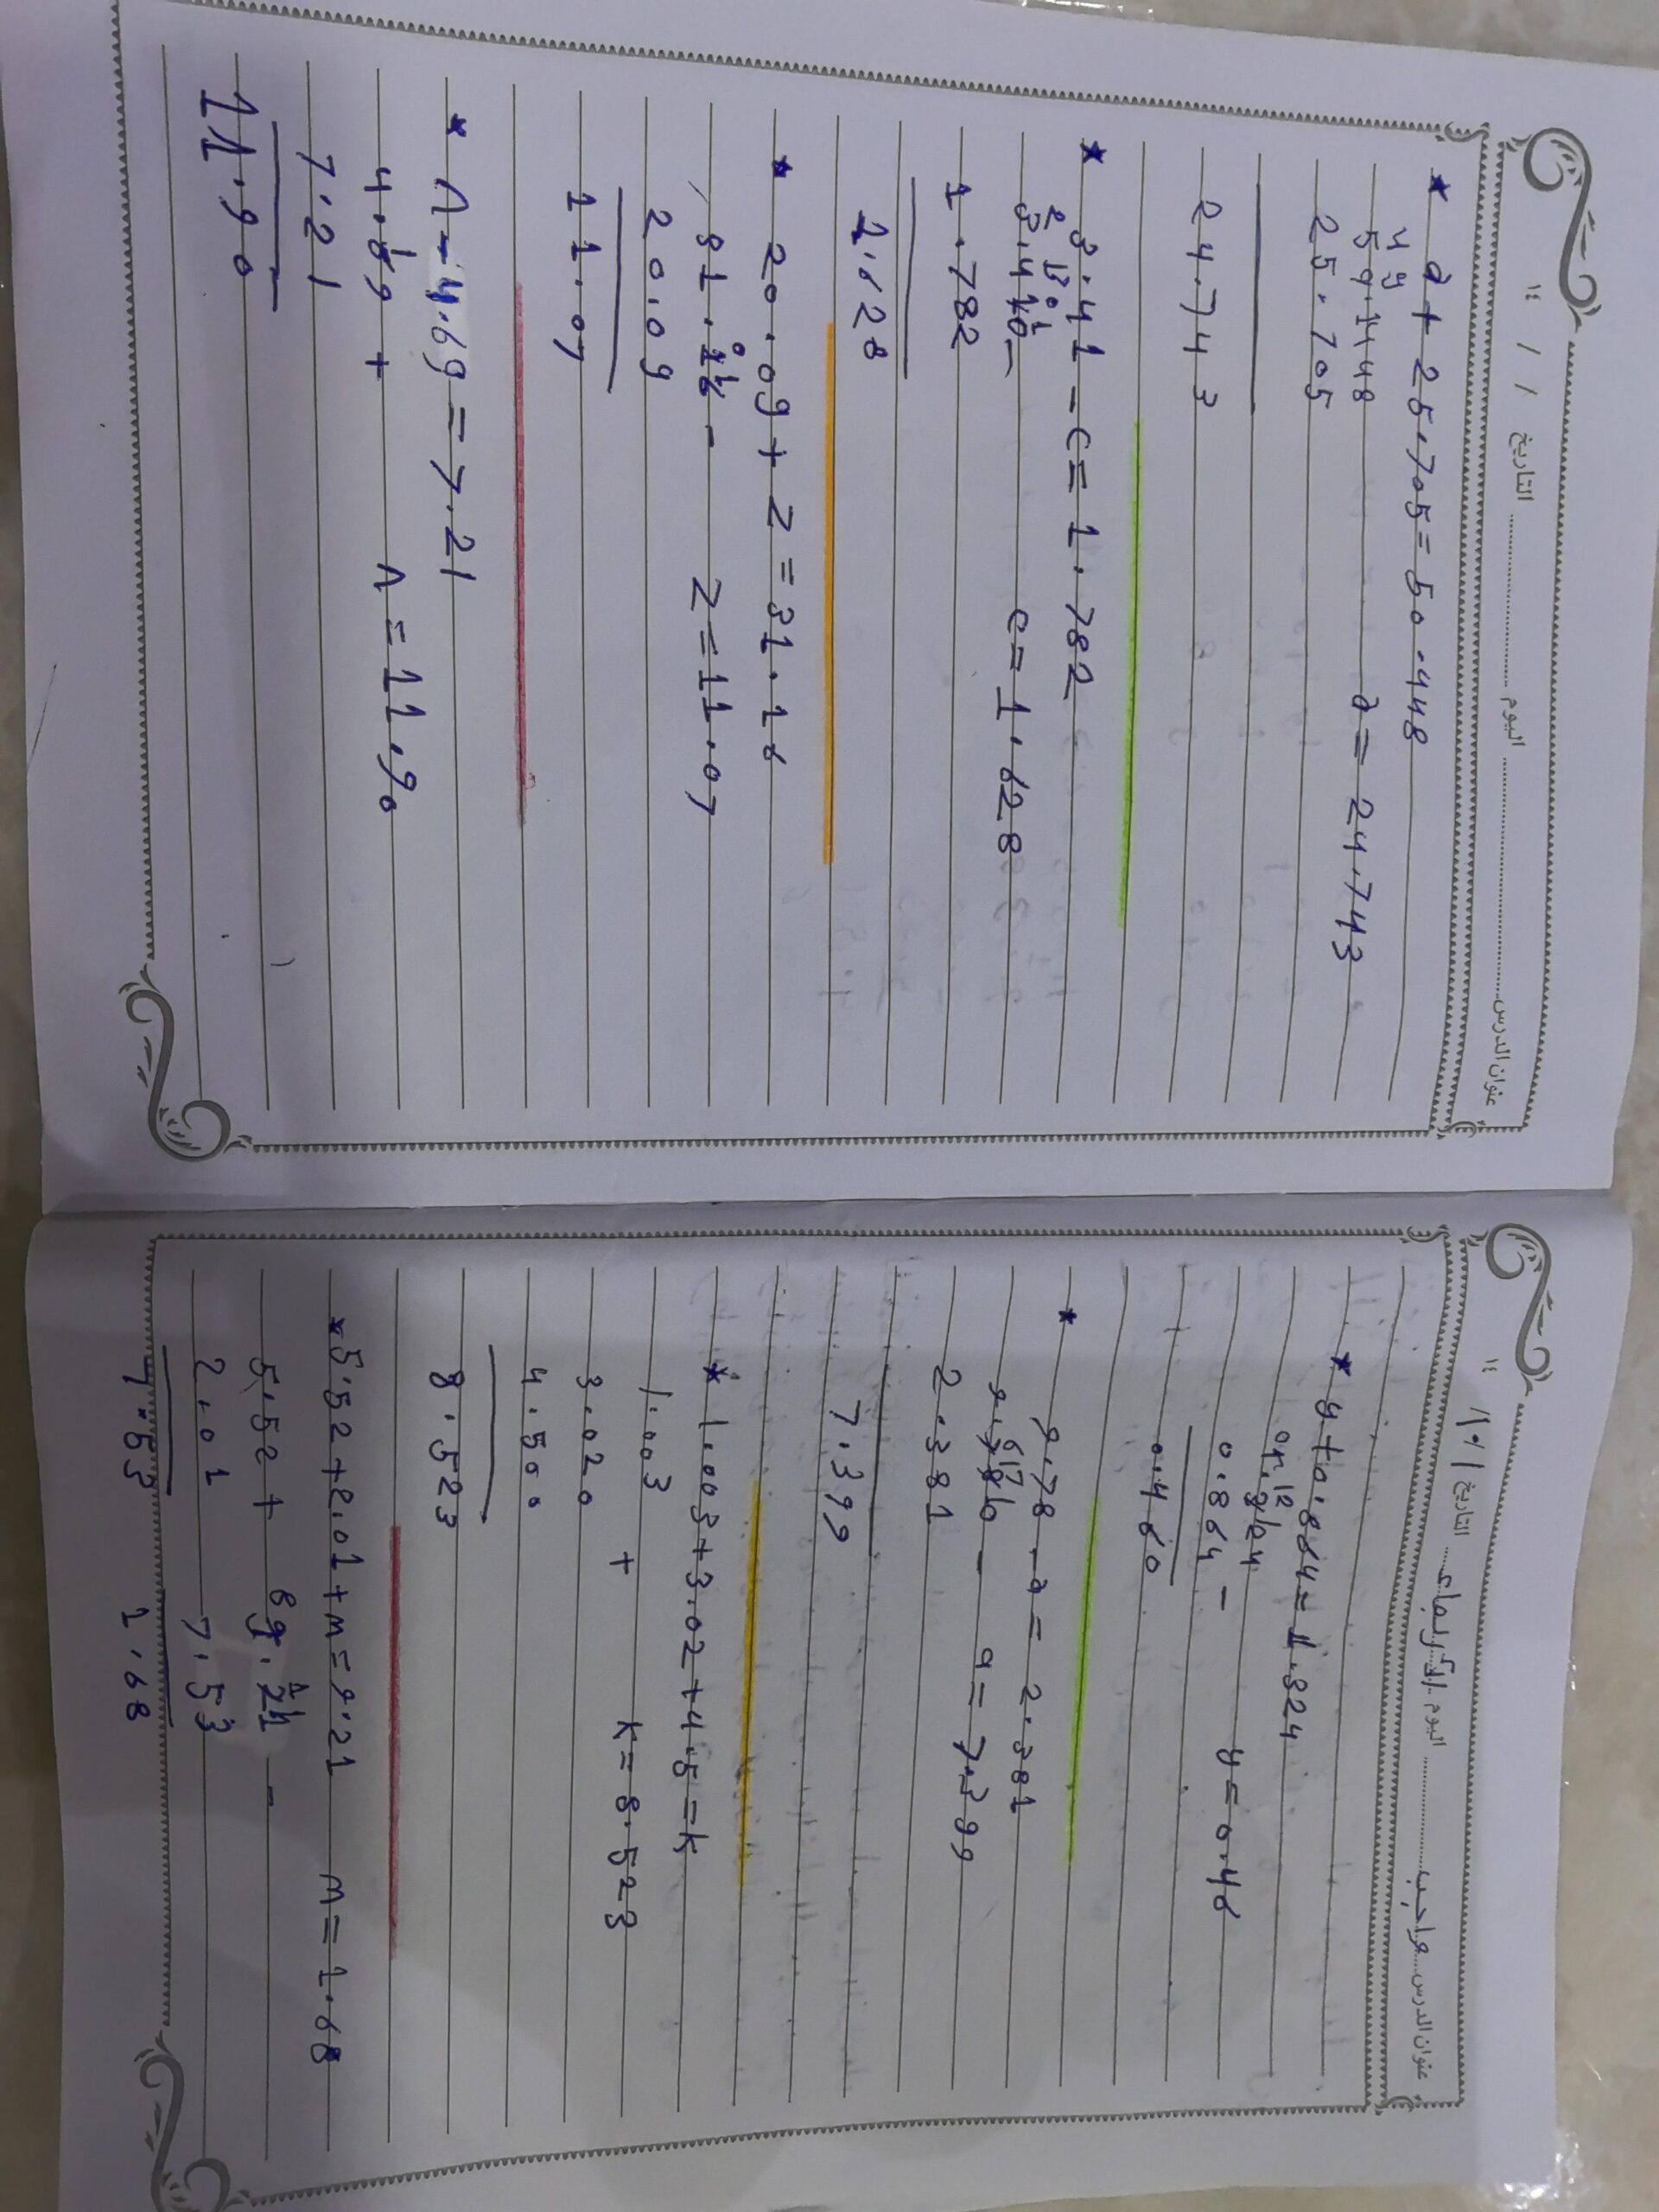 ١٤ / / التاريخ ........ اليوم ........ عنوان الدرس
* a + 25.705 = 50.448
4 9
50.1448 a = 24.743
25.705
24.743
* 3.41 - c = 1.782
2 13 0 1
3.410 - c = 1.628
1.782
1.628
* 20.09 + z = 31.16
0 1
31.16 - z = 11.07
20.09
11.07
* n - 4.69 = 7.21
1
4.69 + n = 11.90
7.21
11.90
١٤ / ١٠ / التاريخ الأربعاء اليوم ........ واجب عنوان الدرس
* y + 0.864 = 1.324
0 12
1.324 y = 0.46
0.864 -
0.460
* 9.78 - a = 2.381
6 17
9.780 - a = 7.399
2.381
7.399
* 1.003 + 3.02 + 4.5 = k
1.003 + k = 8.523
3.020
4.500
8.523
* 5.52 + 2.01 + m = 9.21 m = 1.68
5.52 + 9.21 -
2.01 7.53
7.53 1.68